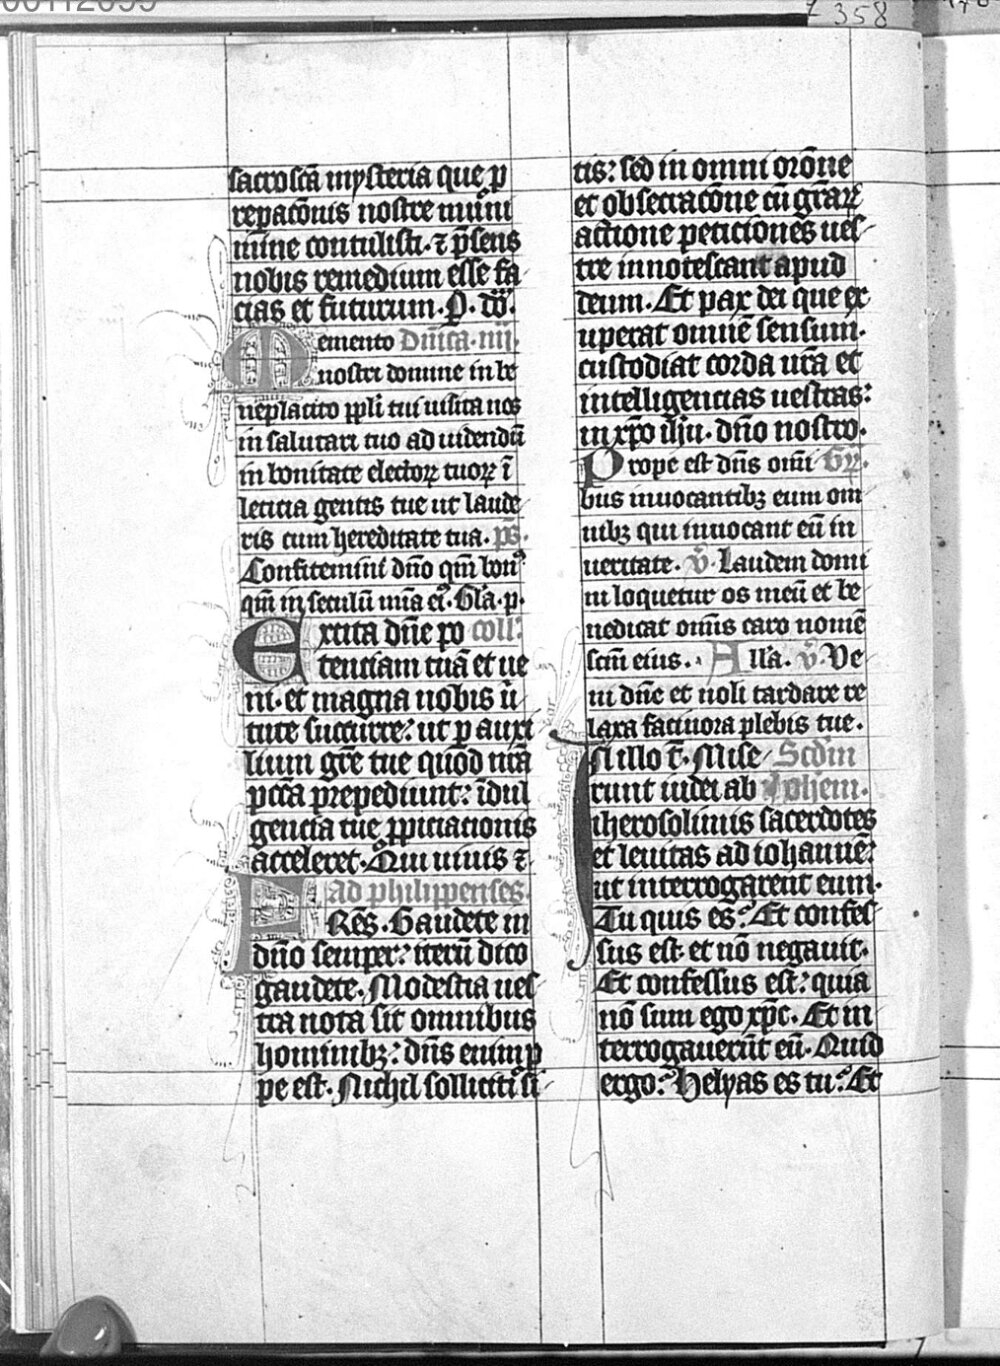 00112099
358
sacroscā mysteria que p
repacōnis nostre muni
mine contulisti· ⁊ p̄sens
nobis remedium esse fa
cias et futurum· P· dō·
Memento Dn̄ica·iiij·
nostri domine in be
neplacito ppl̄i tui uisita nos
in salutari tuo ad uidendū
in bonitate electoꝝ tuoꝝ ī
leticia gentis tue ut laude
ris cum hereditate tua· ps̄·
Confitemini dn̄o qm̄ bonꝰ
qm̄ in seculū mīa eiꝰ· Gl̄a·p·
Excita dn̄e po coll̄·
tenciam tuā et ue
ni· et magna nobis ū
tute succurre: ut p auxi
lium gr̄e tue quod nr̄a
pcc̄a prepediunt: īdul
gencia tue ꝓpiciacionis
acceleret· Qui uiuis ⁊
Ad philippenses·
FRēs· Gaudete in
dn̄o semper: iterū dico
gaudete· Modestia ues
tra nota sit omnibus
hominibꝫ: dn̄s enim ꝓ
pe est· Nichil sollicitiꝰ si
tis: sed in omni orōne
et obsecracōne cū gr̄aꝝ
actione peticiones ues
tre innotescant apud
deum· Et pax dei que ex
uperat omnē sensum·
custodiat corda ur̄a et
intelligencias uestras:
in xp̄o ih̄u· dn̄o nostro·
Prope est dn̄s omī Gꝝ·
bus inuocantibꝫ eum om
nibꝫ qui inuocant eū in
ueritate· v̄· Laudem domi
ni loquetur os meū et be
nedicat omīs caro nomē
scm̄ eius· All̄a· v̄· Ve
ni dn̄e et noli tardare re
laxa facinora plebis tue·
In illo t̄· Mise Scdm̄
runt iudei ab Joh̄em·
iherosolimis sacerdotes
et leuitas ad iohannē:
ut interrogarent eum·
Tu quis es? Et confes
sus est· et nō negauit·
Et confessus est: quia
nō sum ego xp̄c· Et in
terrogauerūt eū· Quid
ergo? Helyas es tu? Et